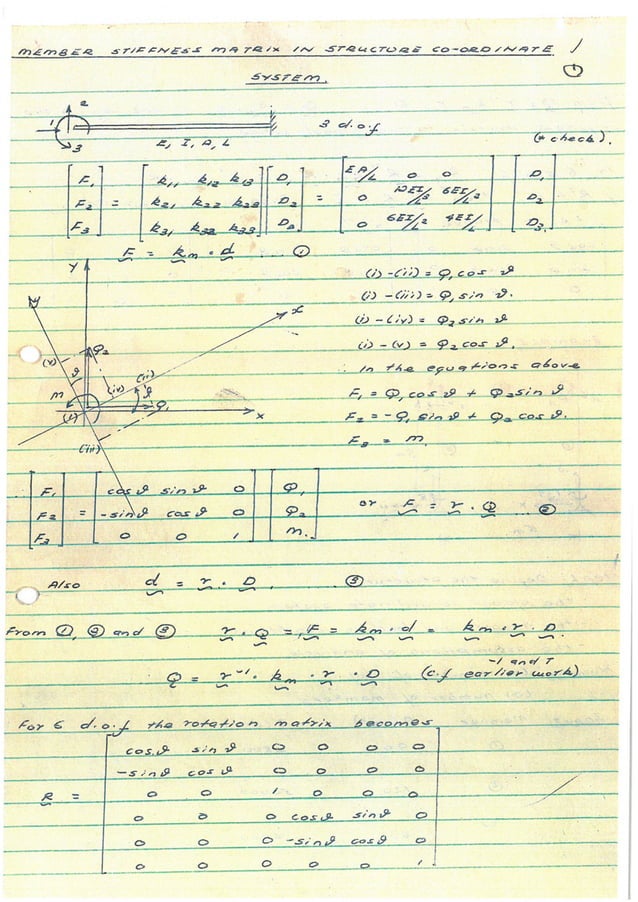 MEMBER STIFFNESS MATRIX IN STRUCTURE CO-ORDINATE
SYSTEM.
1
1 2 3
E, I, A, L
3 d.o.f
(* check).
[F1 F2 F3] = [k11 k12 k13; k21 k22 k23; k31 k32 k33] [D1 D2 D3] = [EA/L 0 0; 0 12EI/L³ 6EI/L²; 0 6EI/L² 4EI/L] [D1 D2 D3.]
F = km . d ... ①
Y y x X
(i) (ii) (iii) (iv) (v) Q1 Q2 M ϑ ϑ
(i) - (ii) = Q1 cos ϑ
(i) - (iii) = Q1 sin ϑ.
(i) - (iv) = Q2 sin ϑ
(i) - (v) = Q2 cos ϑ.
In the equations above
F1 = Q1 cos ϑ + Q2 sin ϑ
F2 = -Q1 sin ϑ + Q2 cos ϑ.
F3 = m.
[F1 F2 F3] = [cos ϑ sin ϑ 0; -sin ϑ cos ϑ 0; 0 0 1] [Q1 Q2 m.] or F = r . Q ... ②
Also d = r . D. ③
From ①, ② and ③ r . Q = F = km . d = km . r . D.
Q = r⁻¹ . km . r . D (c.f earlier work) -1 and T
For 6 d.o.f the rotation matrix becomes
cos ϑ sin ϑ 0 0 0 0
-sin ϑ cos ϑ 0 0 0 0
R = 0 0 1 0 0 0
0 0 0 cos ϑ sin ϑ 0
0 0 0 -sin ϑ cos ϑ 0
0 0 0 0 0 1